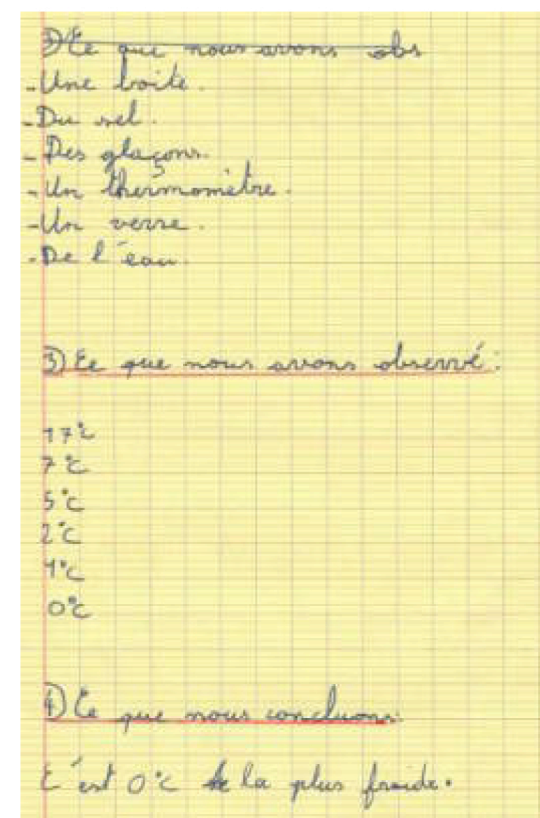 3) Ce que nous avons obs
- Une boite.
- Du sel.
- Des glaçons.
- Un thermomètre.
- Un verre.
- De l'eau.
3) Ce que nous avons observé:
17°c
7°c
5°c
2°c
1°c
0°c
4) Ce que nous concluons:
C'est 0°c la plus froide.